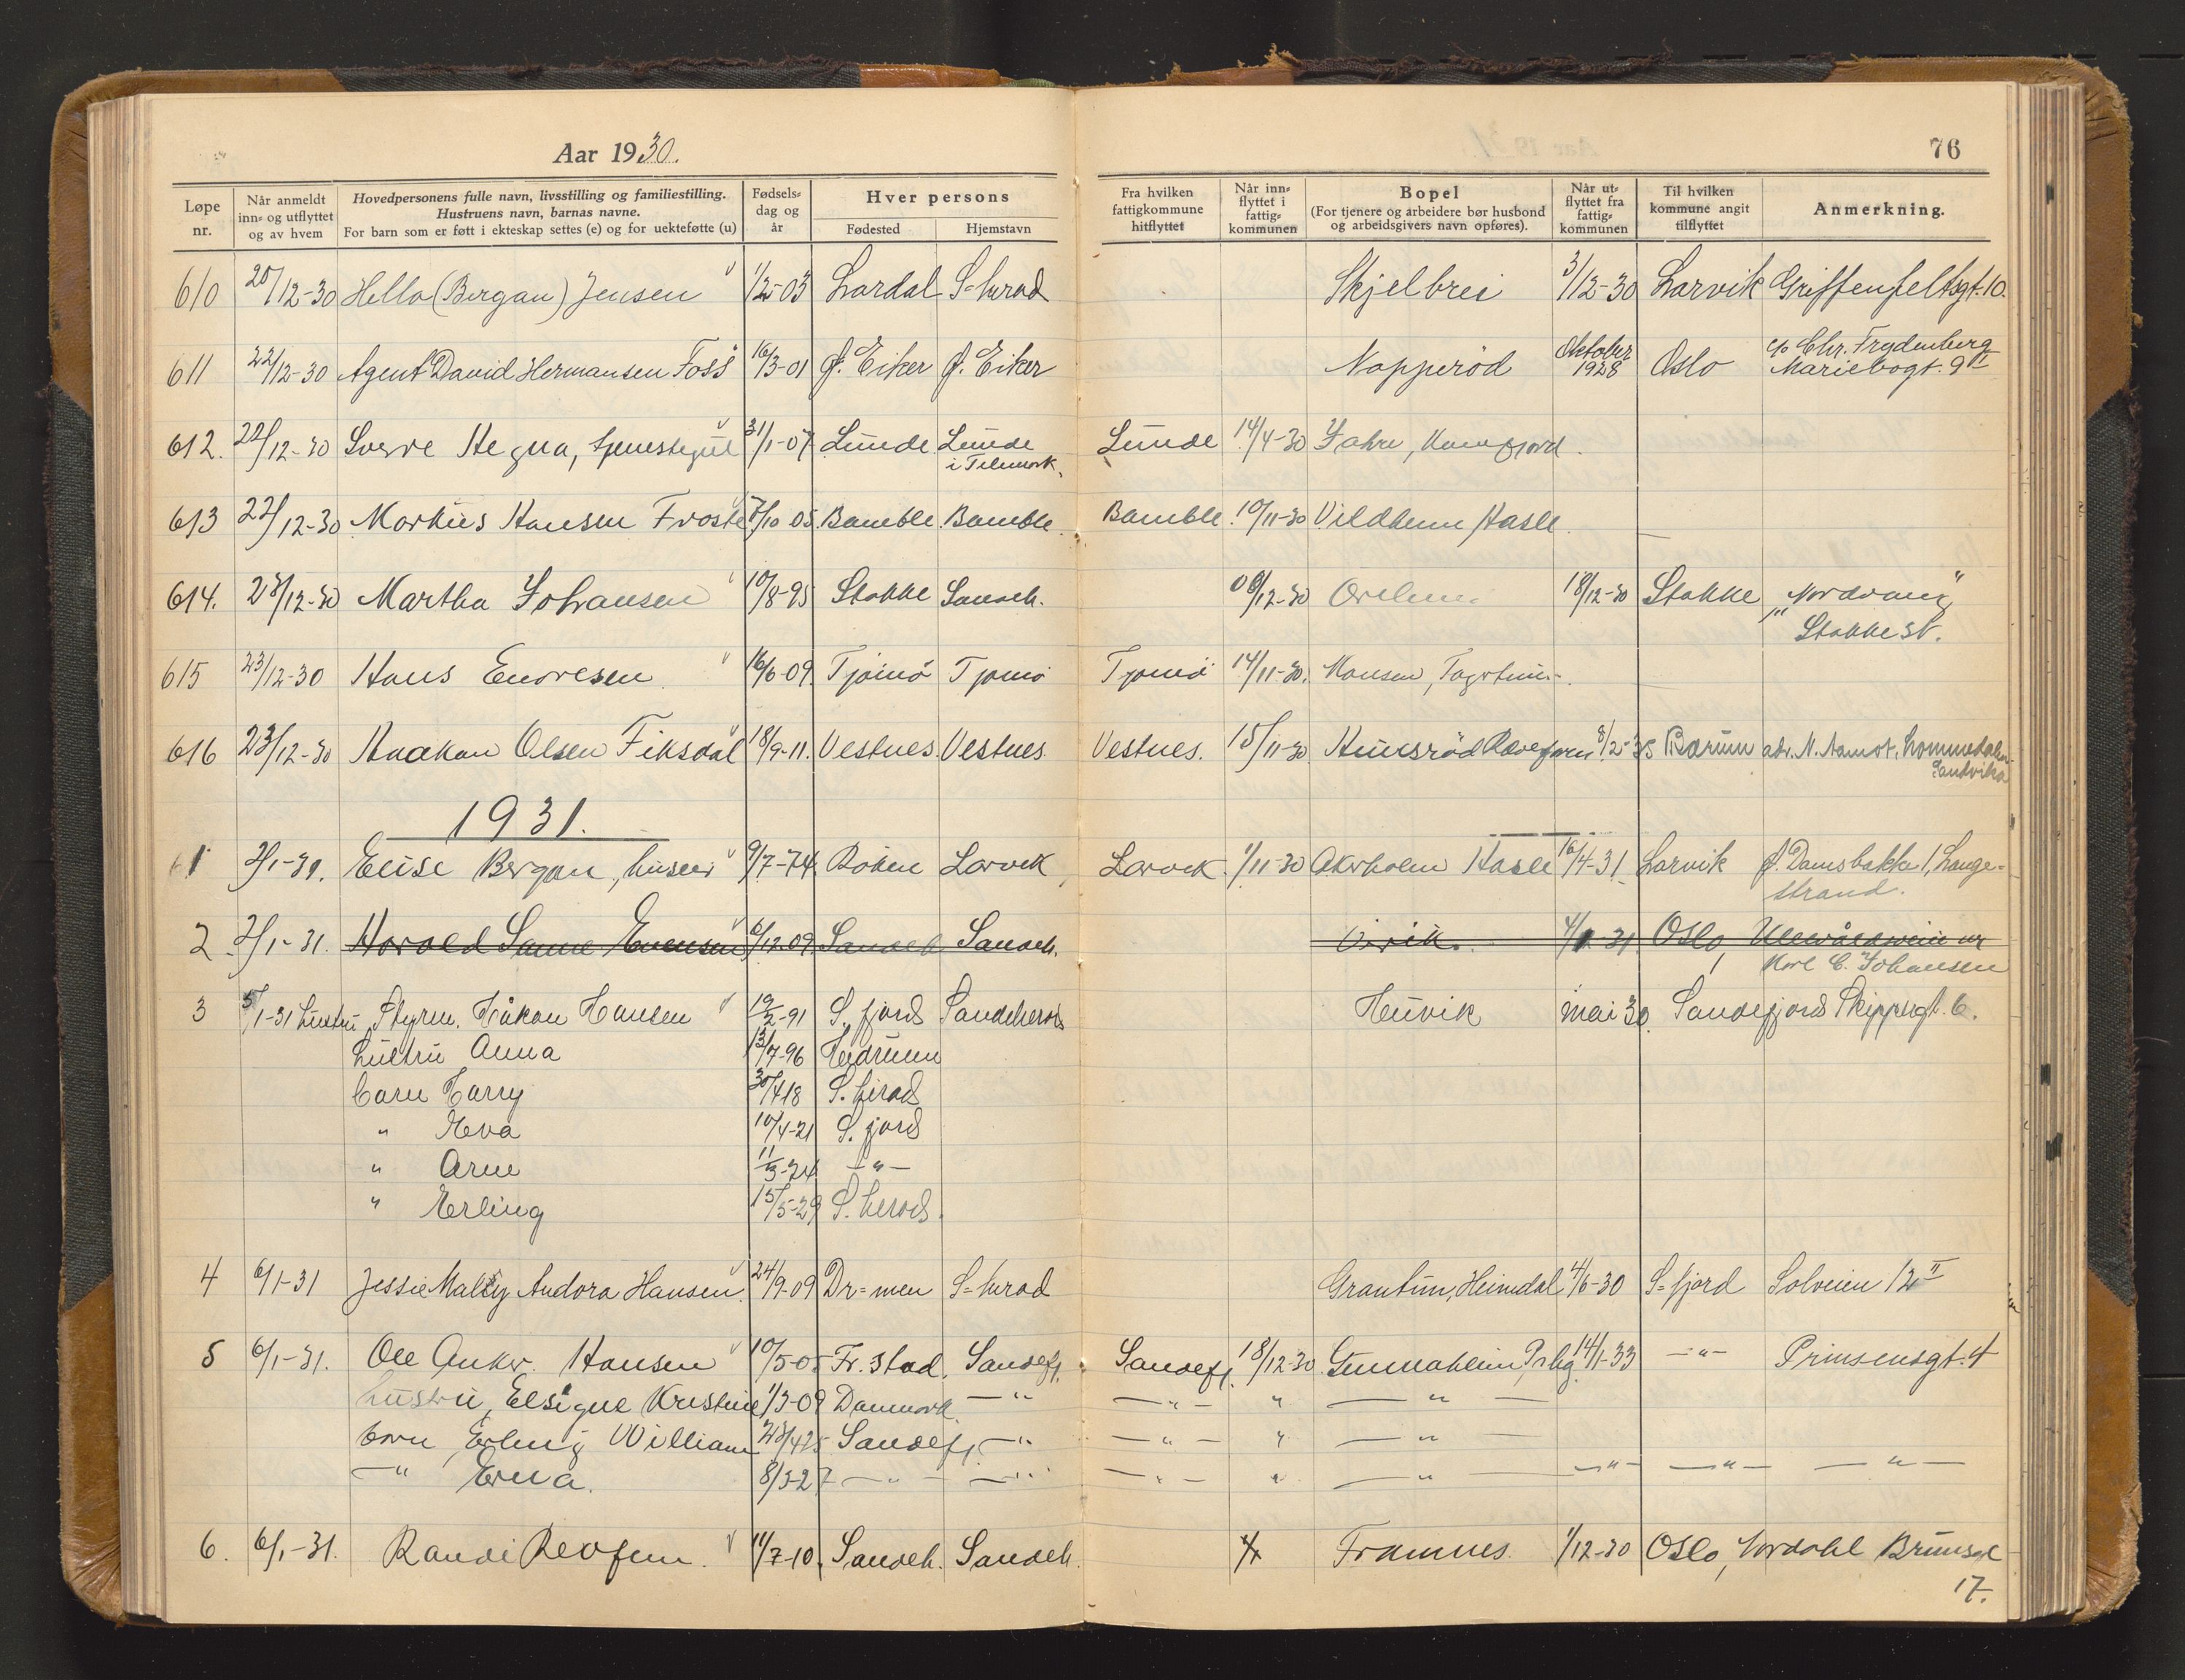 Aar 1930.
76
Løpe nr.
Når anmeldt inn- og utflyttet og av hvem
Hovedpersonens fulle navn, livsstilling og familiestilling. Hustruens navn, barnas navne. For barn som er født i ekteskap settes (e) og for uekteføtte (u)
Fødsels- dag og år
Hver persons
Fødested
Hjemstavn
Fra hvilken fattigkommune hitflyttet
Når inn- flyttet i fattig- kommunen
Bopel (For tjenere og arbeidere bør husbond og arbeidsgivers navn opføres).
Når ut- flyttet fra fattig- kommunen
Til hvilken kommune angit tilflyttet
Anmerkning.
610 20/12-30 Hella (Bergan) Jensen 1/2-03 Lardal S-herad Skjelbrei 3/12-30 Larvik Griffenfeltsgt. 10.
611 22/12-30 Agent David Hermansen Foss 16/3-01 Ø. Eiker Ø. Eiker Napperød Oktober 1928 Oslo c/o Chr. Frydenberg
Mariebogt. 9 II
612. 22/12-30 Sverre Hegna, tjenestegut 31/1-07 Lunde Lunde Lunde 14/4-30
i Telemark.
613 22/12-30 Markus Hansen 7/10 05 Bamble. Bamble. Bamble. 10/11-30 Vildhem Hasle.
614. 23/12-30 Martha Johansen 10/8-95 Stokke Sandeh. 18/12-30 Stokke "Nordvang"
Stokke st.
615 23/12-30 Hans Enoresen 16/6-09. Tjømø Tjømø Tjømø 14/11-30. Hansen,
616 23/12-30 Haakon Olsen Fiksdal 18/9-11. Vestnes Vestnes. Vestnes. 15/11-30 Bærum adr. N. Aamot, Lommedalen
Sandvika
1931.
1 2/1-31. Elise Bergan, 9/7-74. Røken Larvik Larvik 1/11-30 Akerholm Hasle 16/4-31 Larvik Ø. Damsbakke 1, Lange-
strand.
2. 2/1-31. Harald Sanne Evensen 6/12-09 Sandeh Sandeh. Virik. Oslo, Ullevålsveien
Karl C. Johansen
3 5/1-31 Styrm. Håkon Hansen 12/2-91 S. fjord Sandeherad Huvik mai 30 Sandefjord Skippergt. 6.
hustru Anna 13/7-96 Hedrum
barn Harry 30/4 18 S. herad
" Eva 10/4-21 S. fjord
" Arne 11/3-24 -"-
" Erling 15/5-29 S. herad.
4 6/1-31 Jessie Andora Hansen. 24/9-09 Dr=men S-herad Grantun, Heimdal 4/6-30 S-fjord Solveien 12 II
5 6/1-31. Ole Anker. Hansen 10/5-05 Fr.stad. Sandefj. Sandefj. 18/12-30 Gunnaheim 14/1-33 -"- Prinsensgt. 4
hustru, Kristine 1/3-09 Danmark -"- -"- " -"-
barn Erling William 23/4 25 Sandefj. -"- -"- " -"-
-"- Erna. 8/3-27 -"- -"- -"- " -"- -"- -"- -"-
6. 6/1-31. Randi 11/7-10. Sandeh. Sandeh. Framnes. 1/12-30 Oslo,
17.